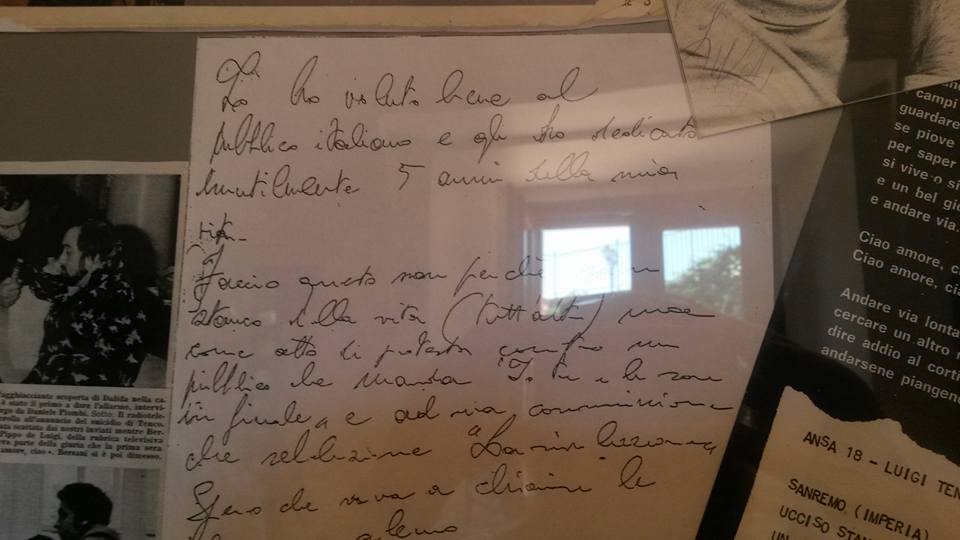 Io ho voluto bene al
pubblico italiano e gli ho dedicato
inutilmente 5 anni della mia
vita.
Faccio questo non perchè
stanco della vita (tutt'altro) ma
come atto di protesta contro un
pubblico che manda "Io tu e le rose
in finale" e ad una commissione
che seleziona "La rivoluzione"
Spero che serva a chiarire le
agghiacciante scoperta di Dalida nella ca-
è stato il primo a dare l'allarme, intervi-
rgo da Daniele Piombi. Sotto: Il radiotele-
l'annuncio del suicidio di Tenco.
ata scattata dai nostri inviati mentre Ber-
Pippo de Luigi, della rubrica televisiva
eva parte della giuria che la prima sera
amore, ciao ». Bernani si è poi dimesso.
campi
guardare
se piove
per saper
si vive o si
e un bel gio
e andare via.
Ciao amore, c
Ciao amore, cia
Andare via lonta
cercare un altro
dire addio al corti
andarsene piangen
ANSA 18 - LUIGI TEN
SANREMO (IMPERIA)
UCCISO STAN
UN